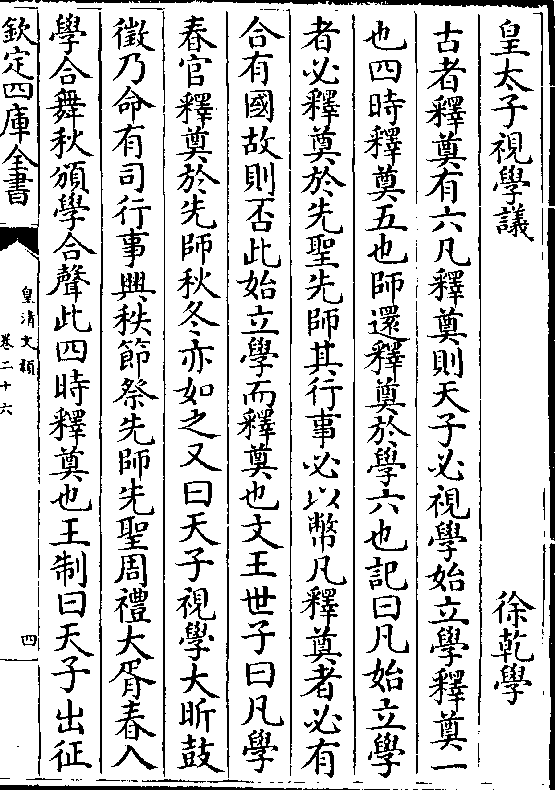 皇太子視學議　徐乾學
古者釋奠有六凡釋奠則天子必視學始立學釋奠一
也四時釋奠五也師還釋奠於學六也記曰凡始立學
者必釋奠於先聖先師其行事必以幣凡釋奠者必有
合有國故則否此始立學而釋奠也文王世子曰凡學
春官釋奠於先師秋冬亦如之又曰天子視學大昕鼓
徵乃命有司行事興秩節祭先師先聖周禮大胥春入
學合舞秋頒學合聲此四時釋奠也王制曰天子出征
欽定四庫全書
皇清文穎
卷二十六
四